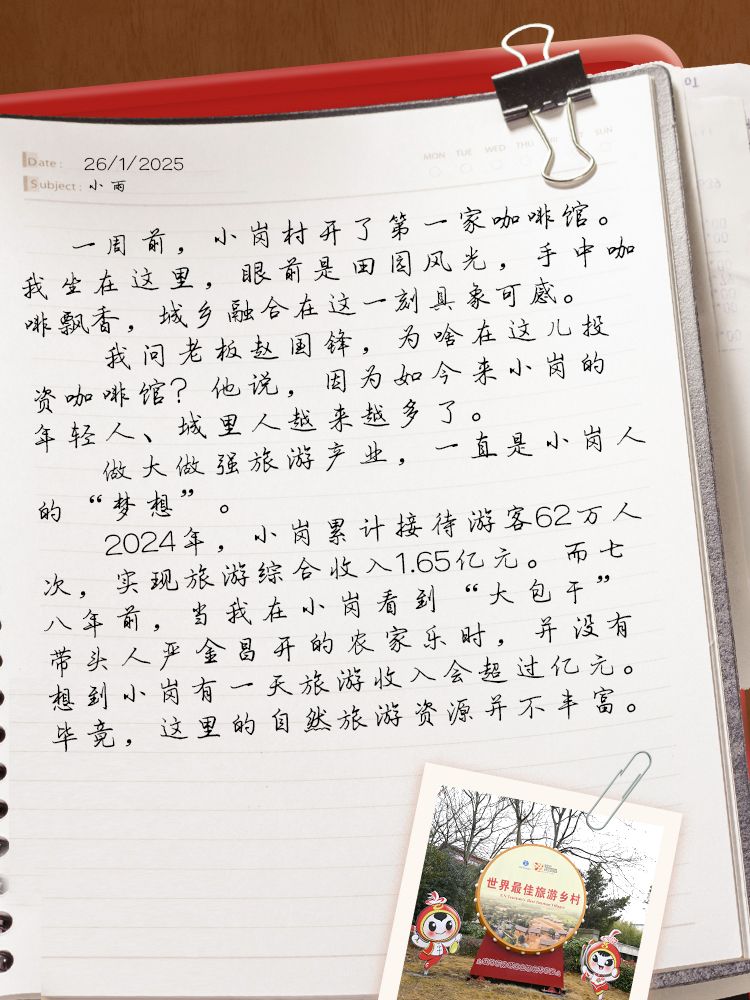 To
Date: 26/1/2025
MON TUE WED THU SUN
Subject: 小雨
一周前，小岗村开了第一家咖啡馆。
我坐在这里，眼前是田园风光，手中咖
啡飘香，城乡融合在这一刻具象可感。
我问老板赵国锋，为啥在这儿投
资咖啡馆？他说，因为如今来小岗的
年轻人、城里人越来越多了。
做大做强旅游产业，一直是小岗人
的“梦想”。
2024年，小岗累计接待游客62万人
次，实现旅游综合收入1.65亿元。而七
八年前，当我在小岗看到“大包干”
带头人严金昌开的农家乐时，并没有
想到小岗有一天旅游收入会超过亿元。
毕竟，这里的自然旅游资源并不丰富。
世界最佳旅游乡村